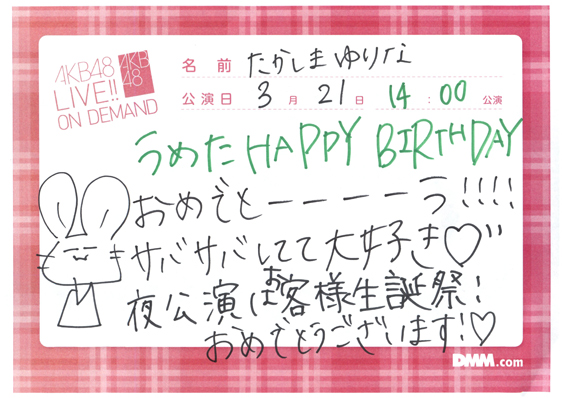 AKB48
LIVE!!
ON DEMAND
AKB
48
名前 たかしまゆりな
公演日 3月21日 14:00 公演
うめたHAPPY BIRTHDAY
おめでとーーーーう!!!!
サバサバしてて大好き♡"
夜公演はお客様生誕祭!
おめでとうございます!♡
DMM.com